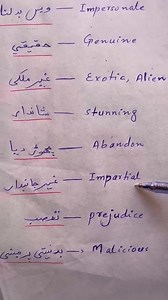 ویس بدلنا — Impersonate
حقیقی — Genuine
غیر ملکی — Exotic, Alien
شاندار — stunning
چھوڑ دیا — Abandon
غیر جانبدار — Impartial
تعصب — prejudice
بدنیتی پر مبنی — Malicious